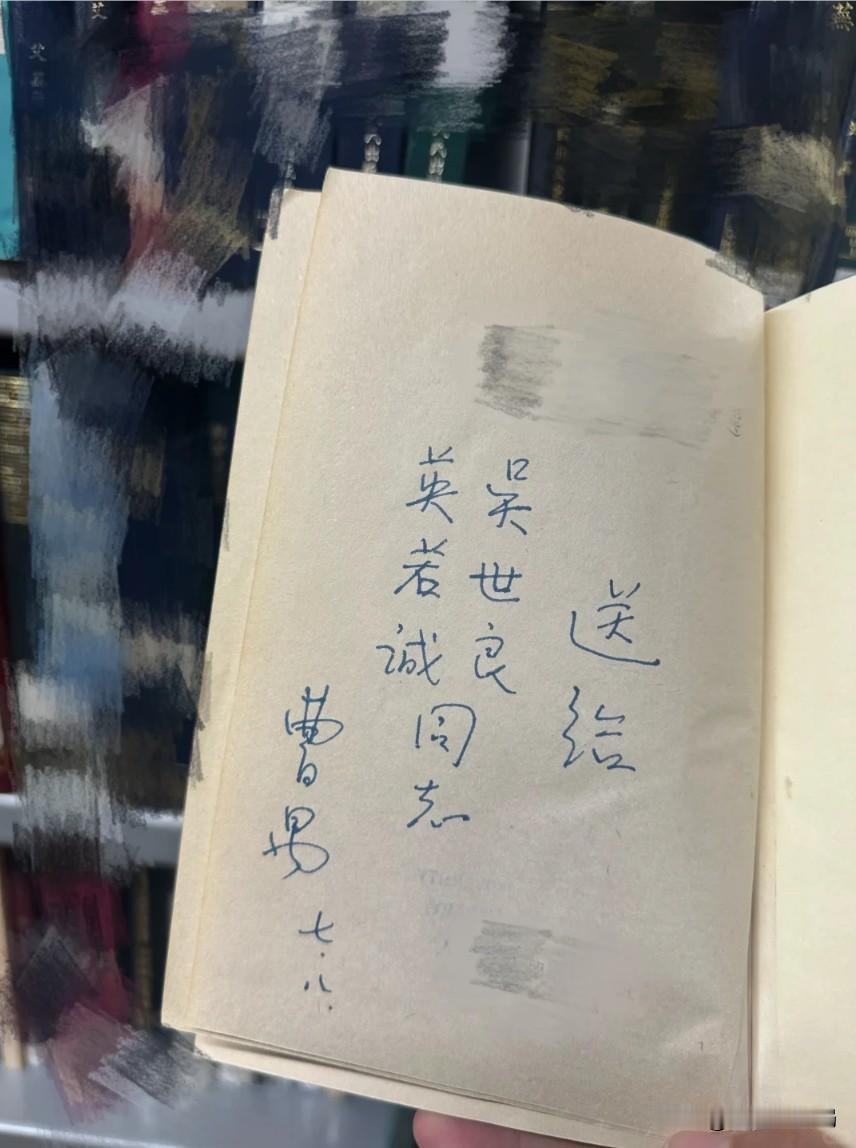 送给
吴世良
英若诚同志
曹禺
七.八.